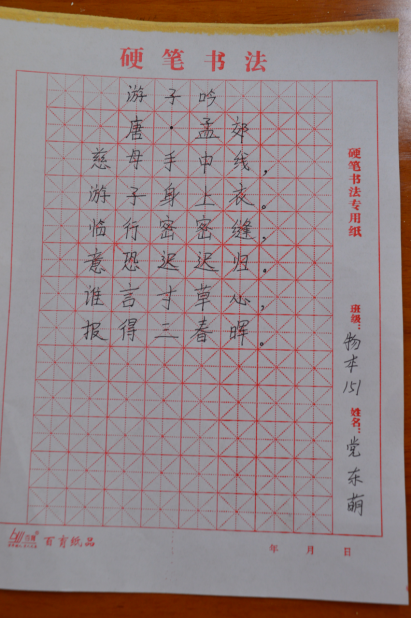 硬笔书法
游子吟
唐·孟郊
慈母手中线，
游子身上衣。
临行密密缝，
意恐迟迟归。
谁言寸草心，
报得三春晖。
硬笔书法专用纸
班级：物本151
姓名：党东萌
百育纸品
年 月 日